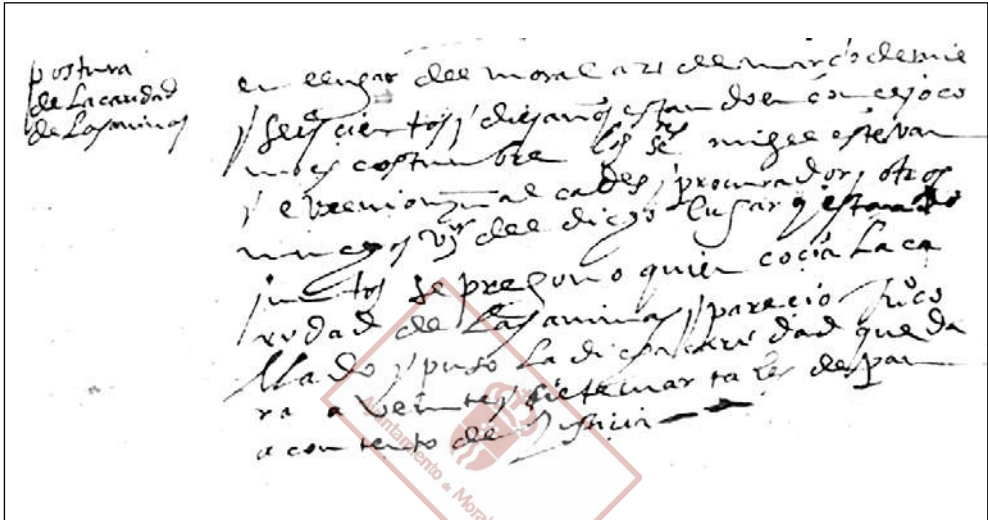 postura
de La caridad
de Las animas
en el lugar del moral a 21 de março de mil
y seiscientos y diez años estando en concejo co
mo es costumbre los sres migel estevan
y alcaldes y procurador y otros
muchos vs del dicho lugar y estando
juntos se pregunto quien cocia La ca
ridad de Las animas y parecio
llado y puso La dicha caridad que da
ra a veinte y siete quartales de pan
a contento de Justicia
Ayuntamiento de